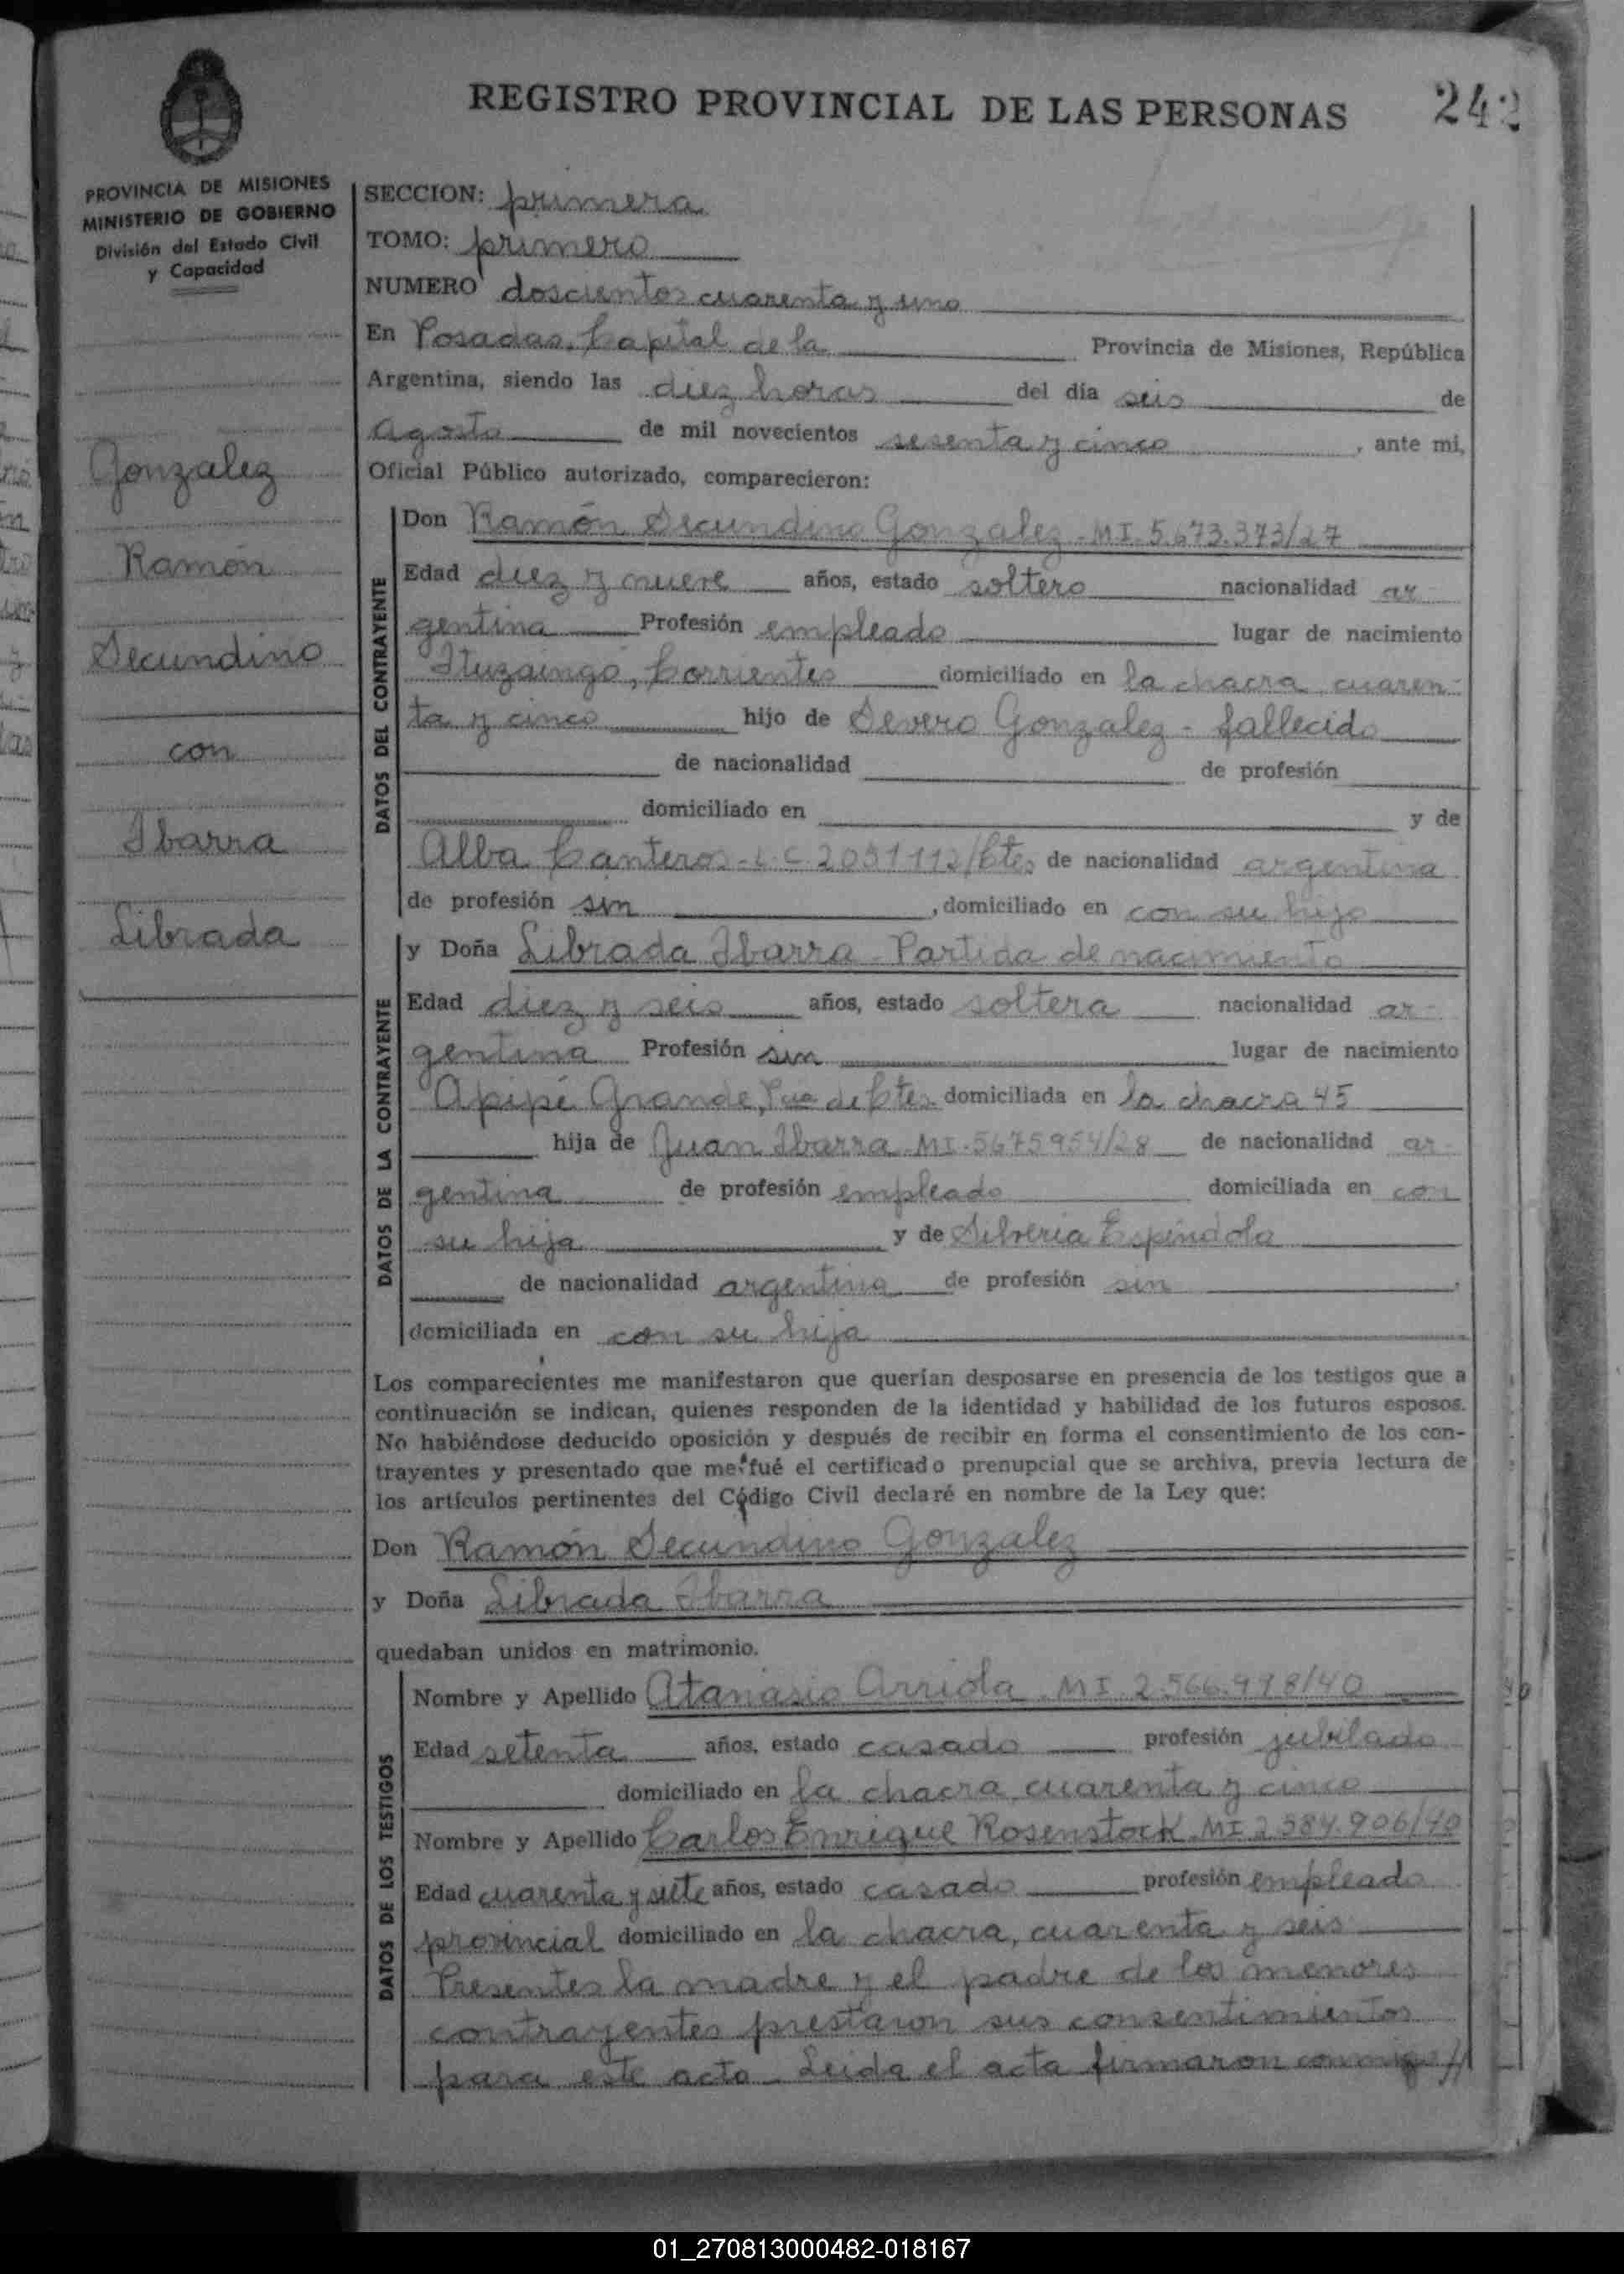 REGISTRO PROVINCIAL DE LAS PERSONAS
242
PROVINCIA DE MISIONES
MINISTERIO DE GOBIERNO
División del Estado Civil
y Capacidad
Gonzalez
Ramón
Secundino
con
Ibarra
Librada
SECCION: primera
TOMO: primero
NUMERO doscientos cuarenta y uno
En Posadas, Capital de la Provincia de Misiones, República
Argentina, siendo las diez horas del día seis de
agosto de mil novecientos sesenta y cinco, ante mi,
Oficial Público autorizado, comparecieron:
DATOS DEL CONTRAYENTE
Don Ramón Secundino Gonzalez - MI. 5.673.373/27
Edad diez y nueve años, estado soltero nacionalidad ar
gentina Profesión empleado lugar de nacimiento
Ituzaingó, Corrientes domiciliado en la chacra cuaren-
ta y cinco hijo de Severo Gonzalez - fallecido
de nacionalidad de profesión
domiciliado en y de
Alba Canteros - L.C. 2051112/Ctes de nacionalidad argentina
de profesión sin, domiciliado en con su hijo
DATOS DE LA CONTRAYENTE
y Doña Librada Ibarra - Partida de nacimiento
Edad diez y seis años, estado soltera nacionalidad ar-
gentina Profesión sin lugar de nacimiento
Apipé Grande, Pcia de Ctes. domiciliada en la chacra 45
hija de Juan Ibarra - MI. 5675954/28 de nacionalidad ar-
gentina de profesión empleado domiciliada en con
su hija y de Silveria Espindola
de nacionalidad argentina de profesión sin
domiciliada en con su hija
Los comparecientes me manifestaron que querían desposarse en presencia de los testigos que a
continuación se indican, quienes responden de la identidad y habilidad de los futuros esposos.
No habiéndose deducido oposición y después de recibir en forma el consentimiento de los con-
trayentes y presentado que me fué el certificado prenupcial que se archiva, previa lectura de
los artículos pertinentes del Código Civil declaré en nombre de la Ley que:
Don Ramón Secundino Gonzalez
y Doña Librada Ibarra
quedaban unidos en matrimonio.
DATOS DE LOS TESTIGOS
Nombre y Apellido Atanasio Arriola - MI. 2.566.978/40
Edad setenta años, estado casado profesión jubilado
domiciliado en la chacra cuarenta y cinco
Nombre y Apellido Carlos Enrique Rosenstock. MI 2.584.906/40
Edad cuarenta y siete años, estado casado profesión empleado
provincial domiciliado en la chacra, cuarenta y seis
Presentes la madre y el padre de los menores
contrayentes prestaron sus consentimientos
para este acto - Leida el acta firmaron conmigo //
01_270813000482-018167